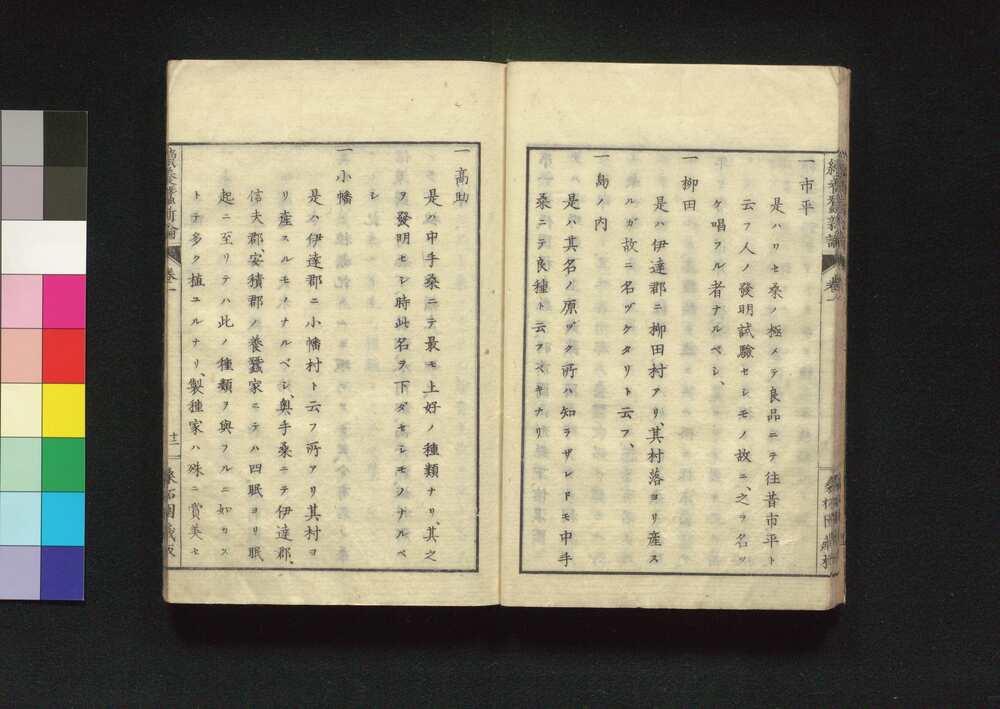 一市平
是ハリセ桑ノ極メテ良品ニテ往昔市平ト
云フ人ノ發明試驗セシモノ故ニ、之ヲ名ツ
ケ唱フル者ナルベシ、
一柳田
是ハ伊達郡ニ柳田村アリ、其村落ヨリ産ス
ルガ故ニ名ヅケタリト云フ、
一島ノ内
是ハ其名ノ原ヅク所ハ知ラザレドモ中手
桑ニテ良種ト云フベキナリ
一高助
是ハ中手桑ニテ最モ上好ノ種類ナリ、其之
ヲ發明セシ時此名ヲ下ダセシモノナルベ
シ
一小幡
是ハ伊達郡ニ小幡村ト云フ所アリ其村ヨ
リ産スルモノナルベシ、奥手桑ニテ伊達郡、
信夫郡、安積郡ノ養蠶家ニテハ四眠ヨリ眠
起ニ至リテハ此ノ種類ヲ與フルニ如カス
トテ多ク植ユルナリ、製種家ハ殊ニ賞美セ
卷一
十二